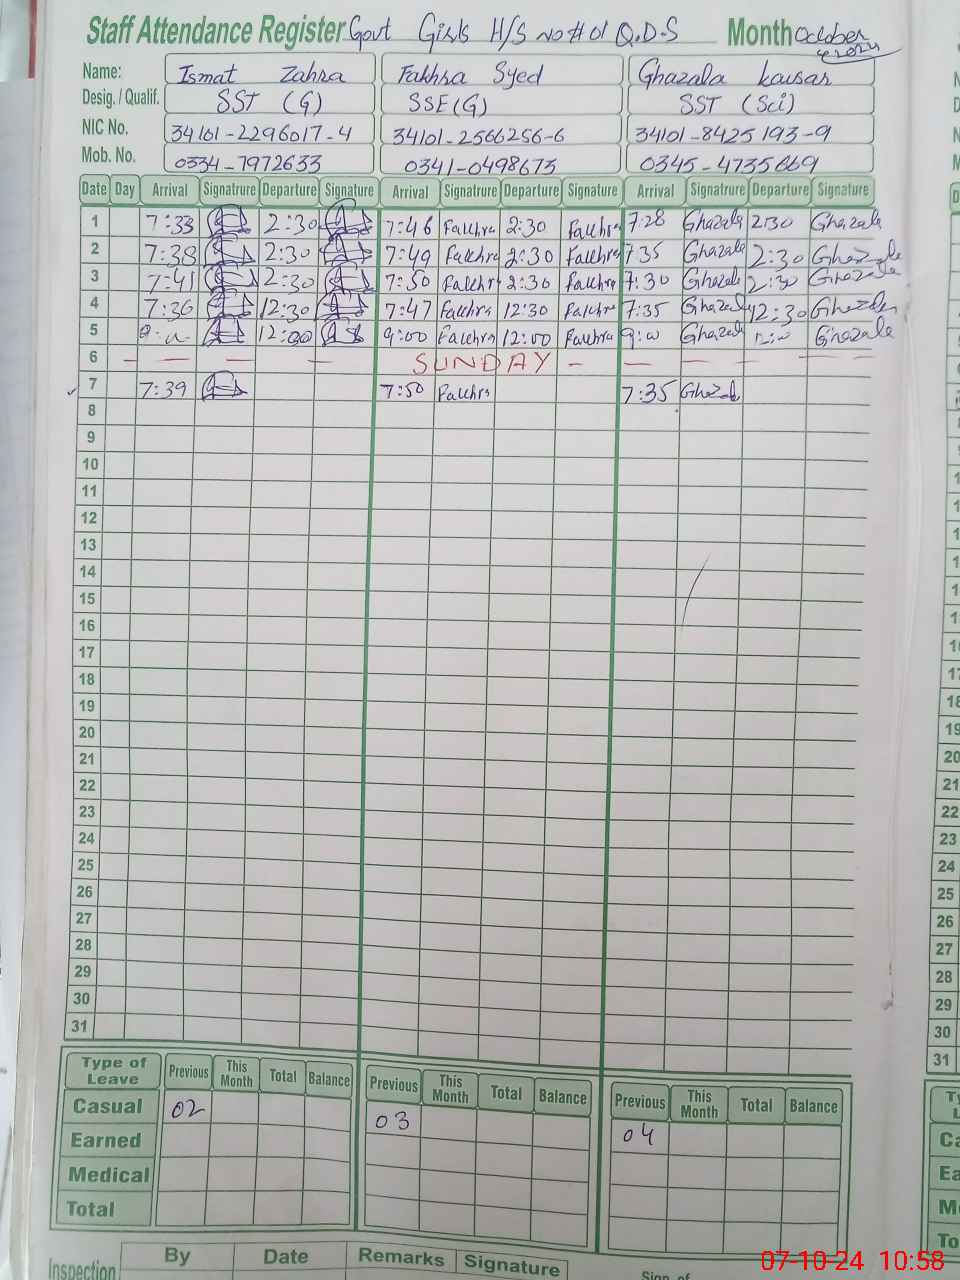 Staff Attendance Register Govt Girls H/S No # 01 Q.D.S Month October 2024
Name: Ismat Zahra Fakhra Syed Ghazala Kausar
Desig. / Qualif. SST (G) SSE(G) SST (Sci)
NIC No. 34101-2296017-4 34101-2566256-6 34101-8425193-9
Mob. No. 0334-7972633 0341-0498673 0345-4735669
Date Day Arrival Signatrure Departure Signature Arrival Signatrure Departure Signature Arrival Signatrure Departure Signature
1 7:33 2:30 7:46 Fakhra 2:30 Fakhra 7:28 Ghazala 2:30 Ghazala
2 7:38 2:30 7:49 Fakhra 2:30 Fakhra 7:35 Ghazala 2:30 Ghazala
3 7:41 2:30 7:50 Fakhra 2:30 Fakhra 7:30 Ghazala 2:30 Ghazala
4 7:36 12:30 7:47 Fakhra 12:30 Fakhra 7:35 Ghazala 12:30 Ghazala
5 9:00 12:00 9:00 Fakhra 12:00 Fakhra 9:00 Ghazala Ghazala
6 SUNDAY
7 7:39 7:50 Fakhra 7:35 Ghazal
8
9
10
11
12
13
14
15
16
17
18
19
20
21
22
23
24
25
26
27
28
29
30
31
Type of Leave Previous This Month Total Balance Previous This Month Total Balance Previous This Month Total Balance
Casual 02 03 04
Earned
Medical
Total
Inspection By Date Remarks Signature Sign. of
07-10-24 10:58